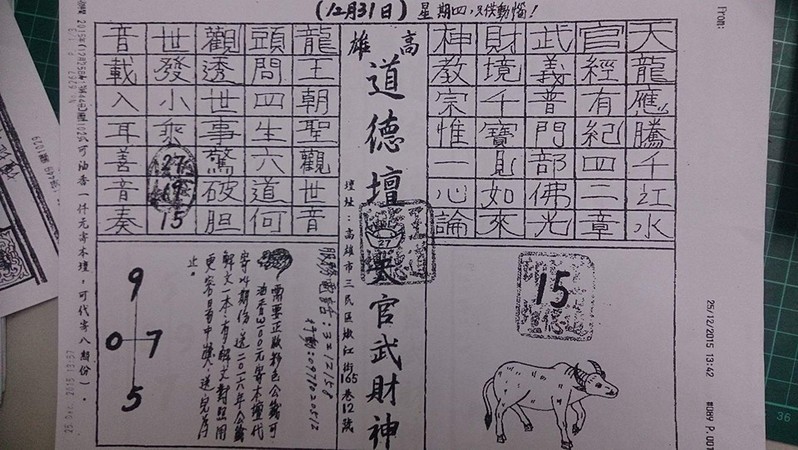 (12月31日)星期四,只供動惱!
天龍應騰千江水
官經有紀四二章
武義普門部佛光
財境千寶則如來
神教宗惟一心論
高雄
道德壇
天官武財神
壇址:高雄市三民區嫩江街165巷12號
27
龍王朝聖觀世音
頭問四生六道何
觀透世事驚破胆
世發小乘
27
19
15
音載入耳善音奏
15
服務電話:3212158
行動:0978020512
需要正版彩色公籤可
油香300元寄本壇代
寄四期份 送二0一六年公籤
解文本,有解文對照用
更容易中獎,送完為
止。
9
0 7
5
可油香一仟元寄本壇,可代寄八期份)。
From:
25/12/2015 13:42
36